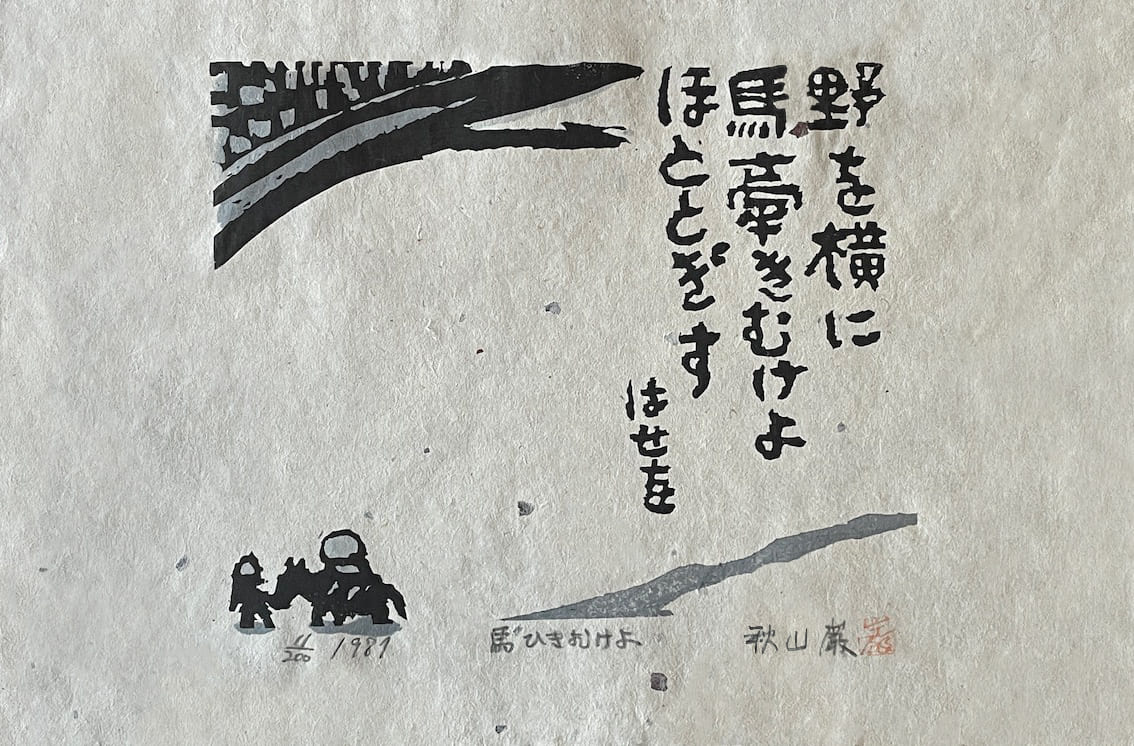 野を横に
馬牽きむけよ
ほとゝぎす
はせを
11/200 1981
馬ひきむけよ
秋山巌
巌